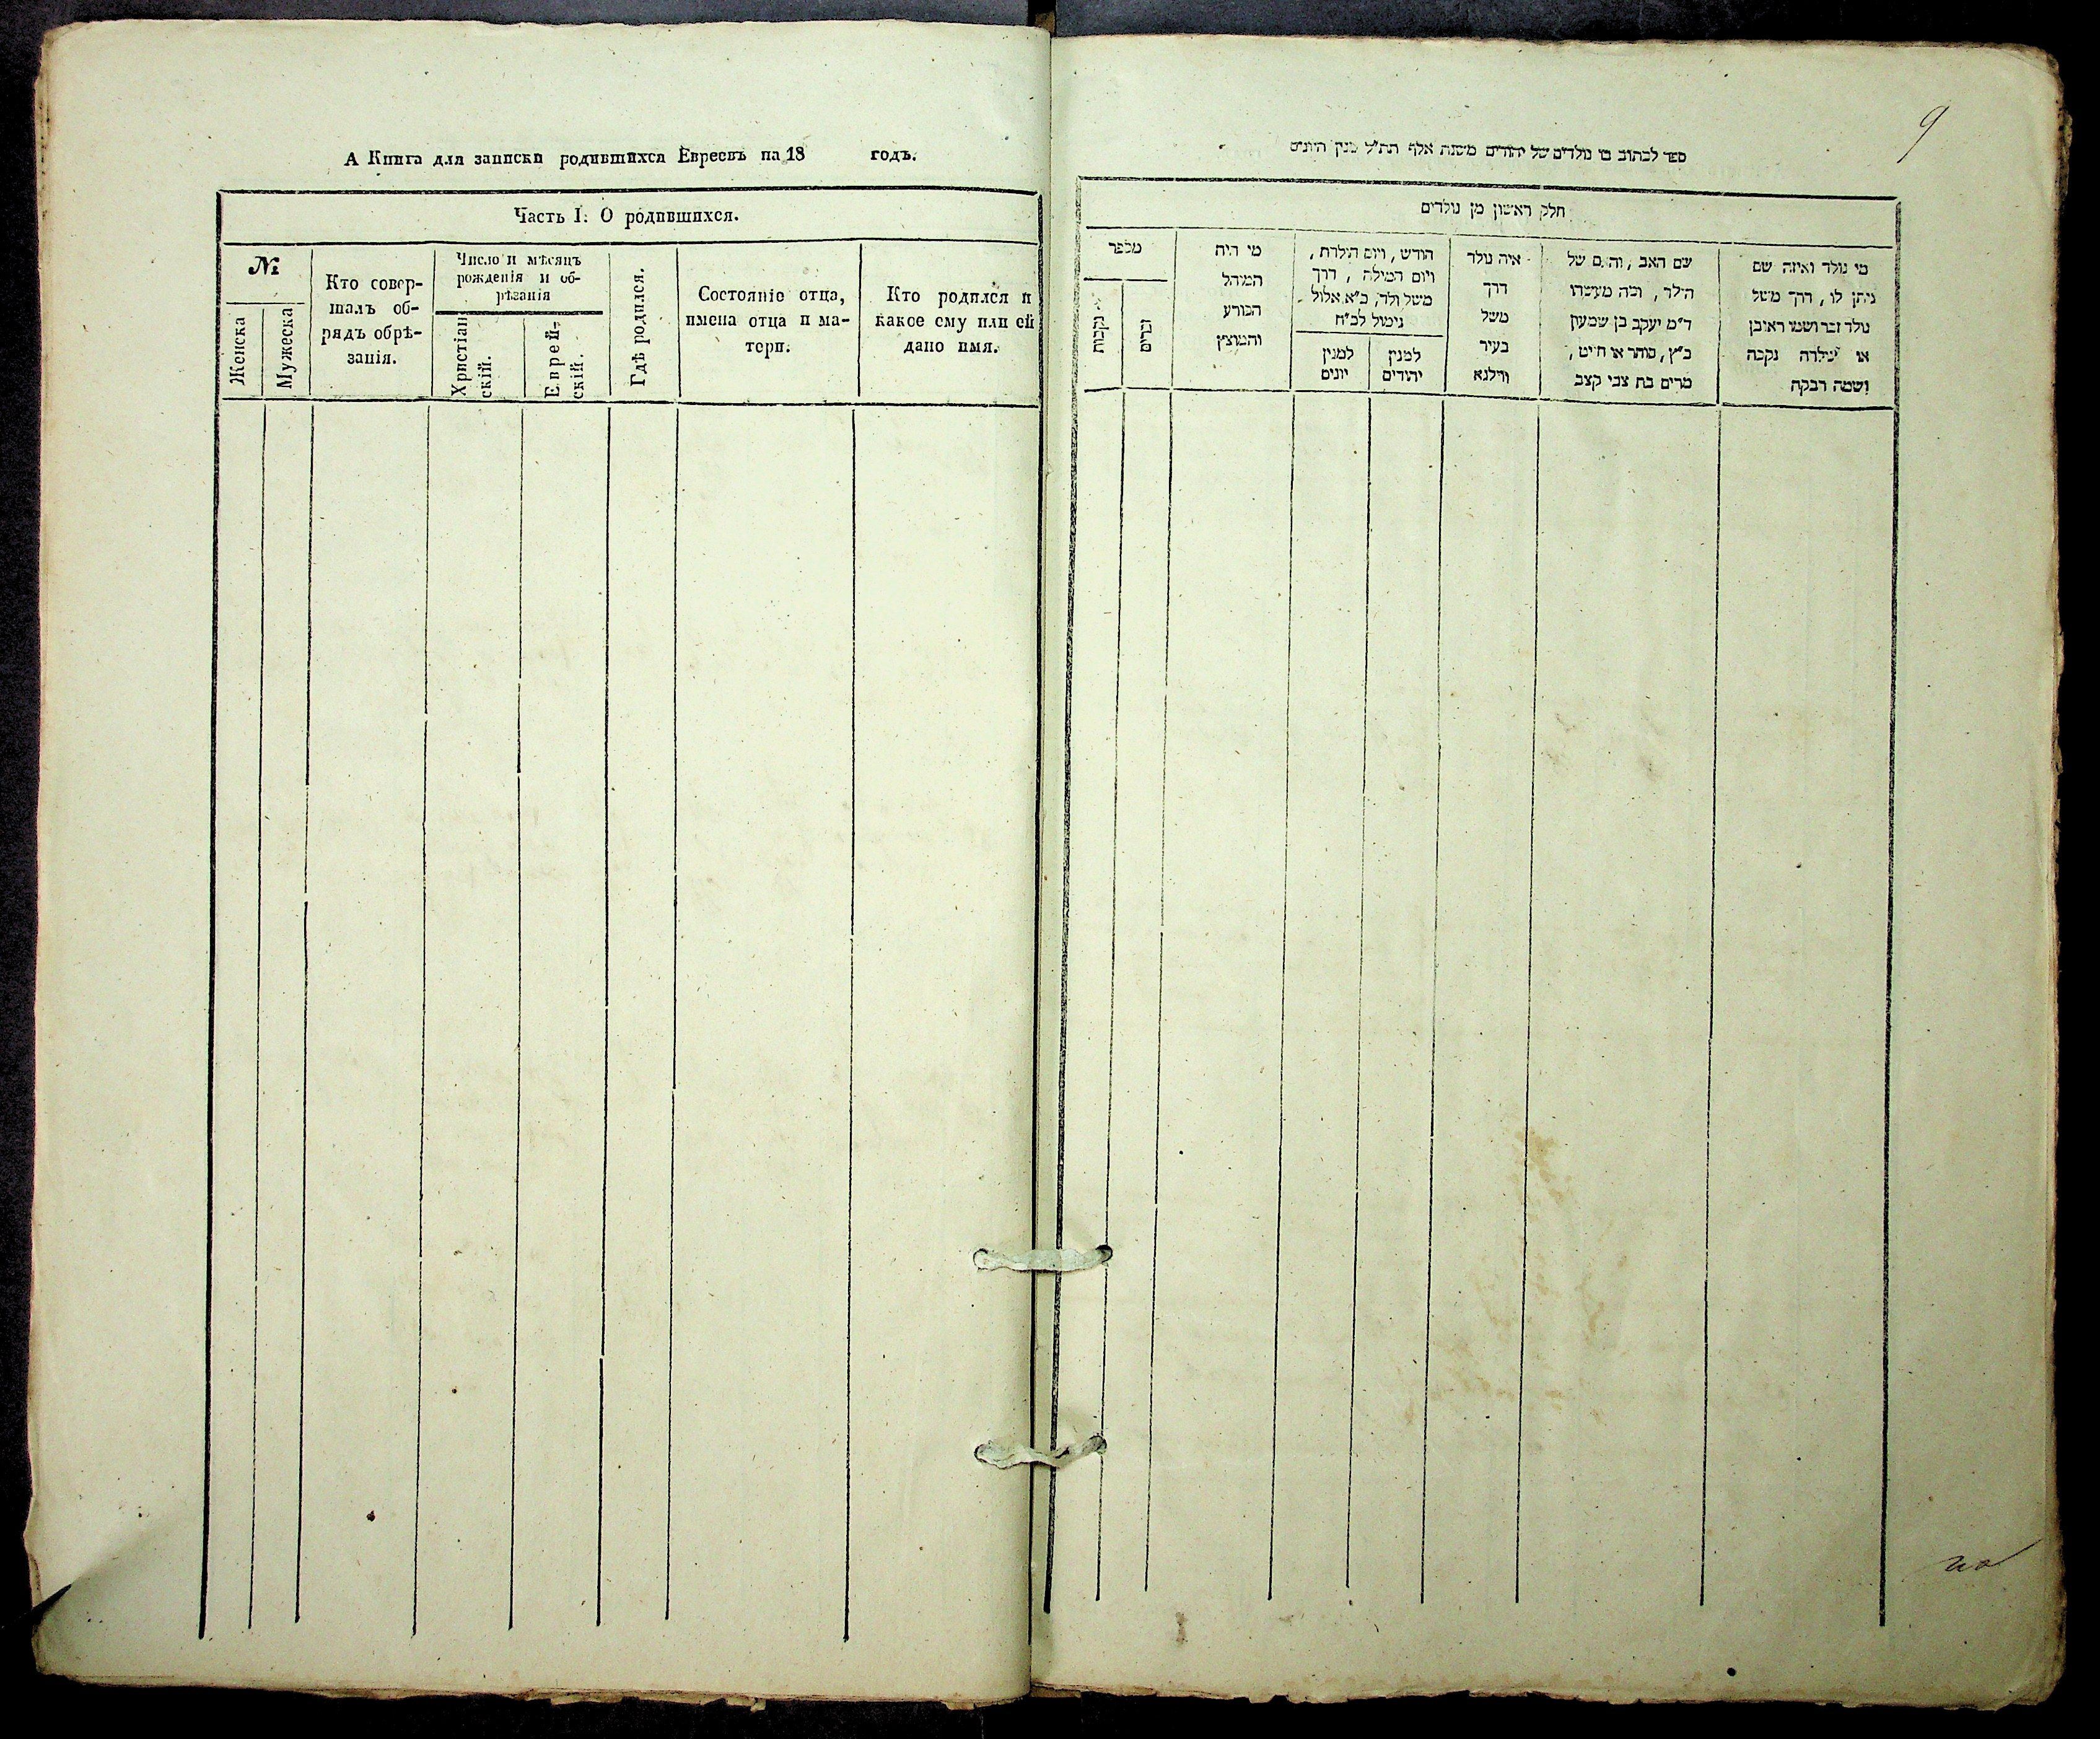 А Книга для записки родившихся Евреевъ на 18 годъ.
Часть I. О родившихся.
№
Женска
Мужеска
Кто совер-
шалъ об-
рядъ обрѣ-
занія.
Число и мѣсяцъ
рожденія и об-
рѣзанія
Христіан
скій.
Еврей-
скій.
Гдѣ родился.
Состояніе отца,
имена отца и ма-
тери.
Кто родился и
какое ему или ей
дано имя.
9
ספר לכתוב בו נולדים של יהודים משנת אלף תת״ל מנין היונים
חלק ראשון מן נולדים
מי נולד ואיזה שם
ניתן לו, דרך משל
נולד זכר ושמו ראובן
או נולדה נקבה
ושמה רבקה
שם האב, והאם של
הילד, ומה מעשהו
ד״מ יעקב בן שמעון
כ״ץ, סוחר או חייט,
מרים בת צבי קצב
איה נולד
דרך
משל
בעיר
ווילנא
חודש, ויום הילדת,
ויום המילה, דרך
משל ולד, כ״א אלול
נימול לכ״ח
למנין
יהודים
למנין
יונים
מי היה
המוהל
הפורע
והמוצץ
מספר
זכרים
נקבות